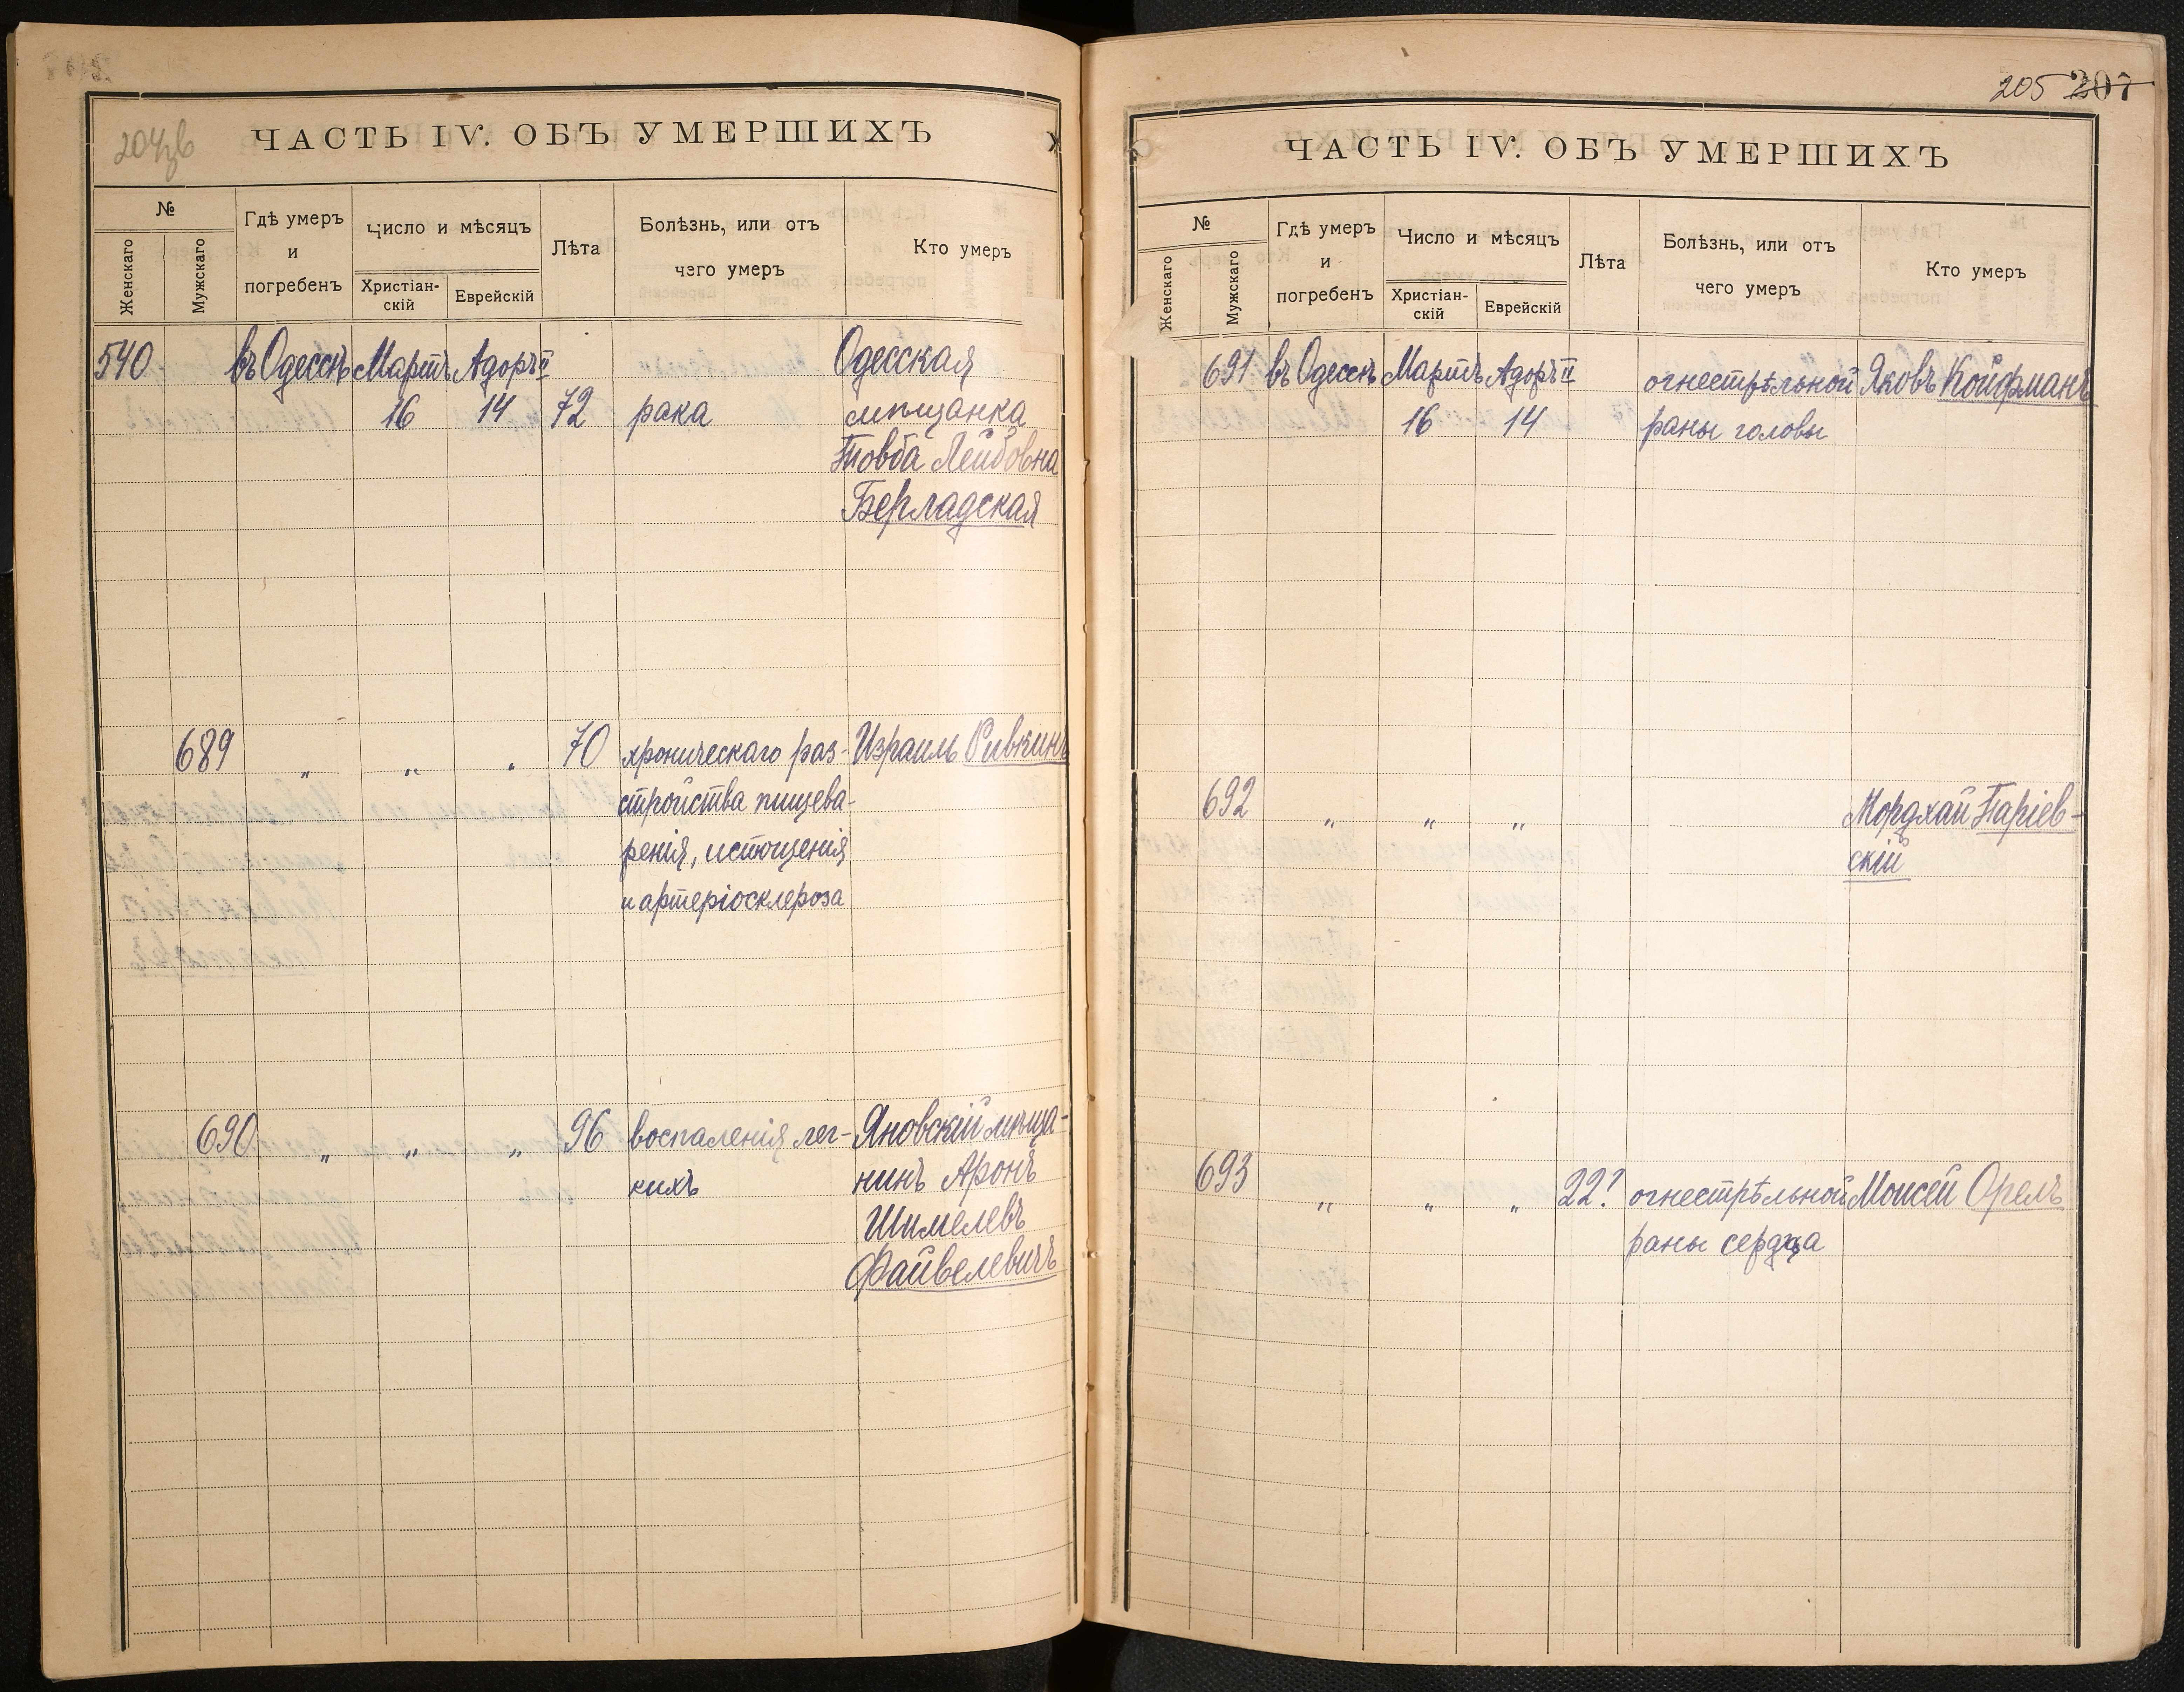 204зв
ЧАСТЬ IV. ОБЪ УМЕРШИХЪ
№
Женскаго
Мужскаго
Гдѣ умеръ
и
погребенъ
Число и мѣсяцъ
Христіан-
скій
Еврейскій
Лѣта
Болѣзнь, или отъ
чего умеръ
Кто умеръ
540 въ Одессѣ Мартъ Адоръ II Одесская
16 14 72 рака мѣщанка
Товба Лейбовна
Берладская
689 " " " 70 хроническаго раз- Израиль Ривкинъ
стройства пищева-
ренія, истощенія
и артеріосклероза
690 " " " 96 воспаленія лег- Яновскій мѣща-
кихъ нинъ Аронъ
Шимелевъ
Файвелевичъ
205 207
ЧАСТЬ IV. ОБЪ УМЕРШИХЪ
№
Женскаго
Мужскаго
Гдѣ умеръ
и
погребенъ
Число и мѣсяцъ
Христіан-
скій
Еврейскій
Лѣта
Болѣзнь, или отъ
чего умеръ
Кто умеръ
691 въ Одессѣ Мартъ Адоръ II огнестрѣльной Яковъ Койфманъ
16 14 раны головы
692 " " " Мордхай Таріев-
скій
693 " " " 22? огнестрѣльной Моисей Орелъ
раны сердца